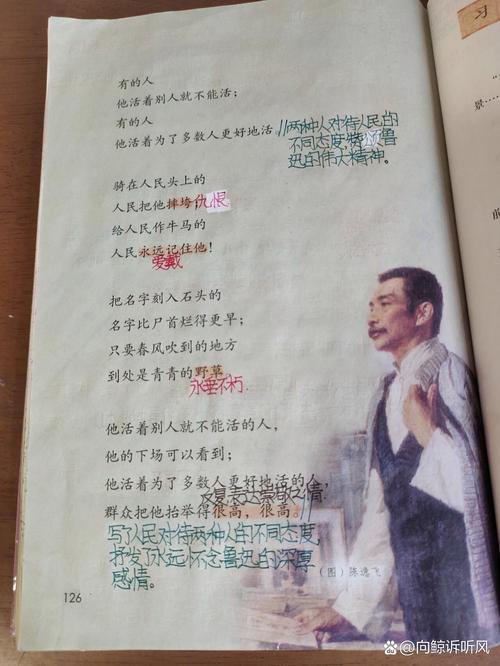 习
景…
有的人
他活着别人就不能活；
有的人
他活着为了多数人更好地活。
//两种人对待人民的
不同态度,赞颂鲁
迅的伟大精神。
骑在人民头上的
人民把他摔垮；
仇恨
给人民作牛马的
人民永远记住他！
爱戴
把名字刻入石头的
名字比尸首烂得更早；
只要春风吹到的地方
到处是青青的野草。
永垂不朽.
他活着别人就不能活的人，
他的下场可以看到；
他活着为了多数人更好地活的人，
反复表达崇敬之情
群众把他抬举得很高，很高。
写了人民对待两种人的不同态度,
抒发了永远怀念鲁迅的深厚
感情。
（图）陈逸飞
126
百家号/向鲸诉听风